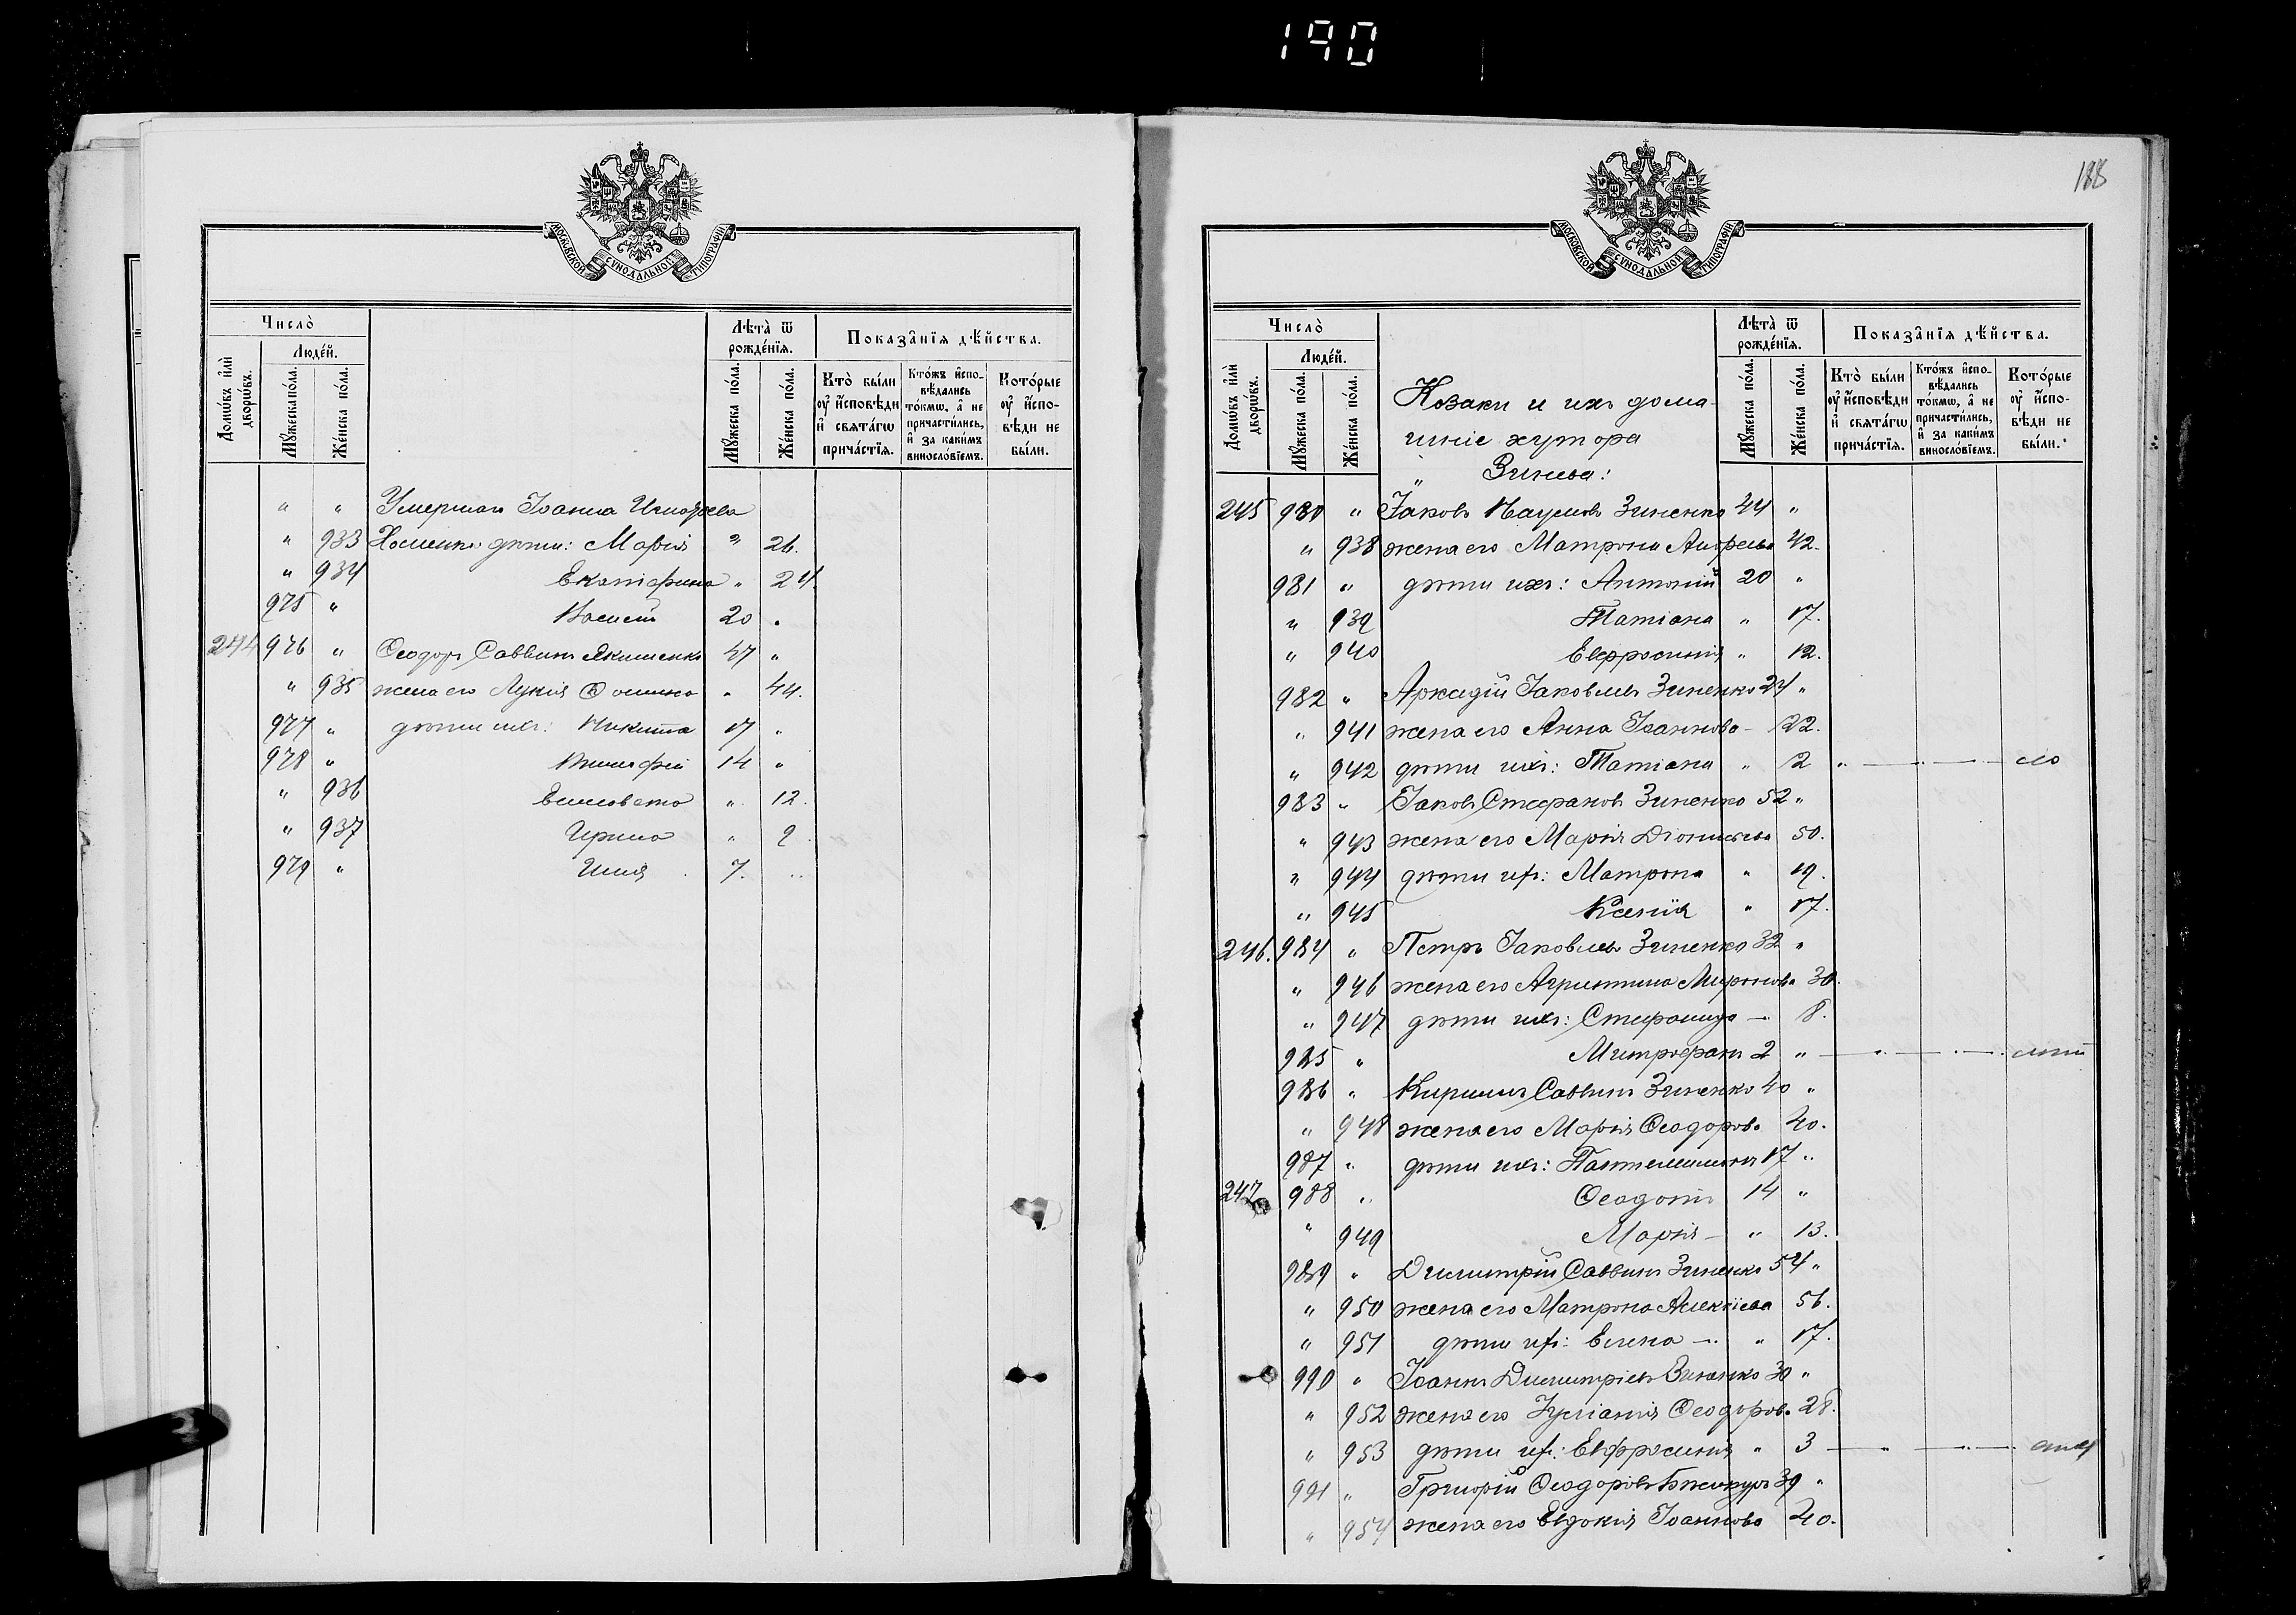 190
МОСКОВСКОЙ СѴНОДАЛЬНОЙ ТИПОГРАФІИ
Число̀
Людéй.
Домѡ́въ и҆лѝ дворѡ́въ.
Мꙋ́жеска по́ла.
Же́нска по́ла.
Лѣта̀ ѿ рожде́нїѧ.
Мꙋ́жеска по́ла.
Же́нска по́ла.
Показа̑нїѧ дѣ́йства.
Кто̀ бы́ли ᲂу҆ и҆́сповѣди и҆ свѧта́гѡ прича́стїѧ.
Кто́жъ и҆сповѣ́дались то́кмѡ, а҆ не причасти́лись, и҆ за каки́мъ виносло́вїемъ.
Кото́рые ᲂу҆ и҆́сповѣди не бы́ли.
" " Умершаго Іоанна
" 933 дѣти: Марія " 26.
" 934 Екатерина " 24.
975 " 20 "
244 976 " Ѳеодоръ Саввинъ Якименко 47 "
" 935 жена его Лукія Ѳомина " 44.
977 " дѣти ихъ: Никита 17 "
978 " Тимофей 14 "
" 936 Елисавета " 12.
" 937 Ирина " 9
979 " Илія 7. "
188
МОСКОВСКОЙ СѴНОДАЛЬНОЙ ТИПОГРАФІИ
Число̀
Людéй.
Домѡ́въ и҆лѝ дворѡ́въ.
Мꙋ́жеска по́ла.
Же́нска по́ла.
Козаки и ихъ дома-
шніе хутора
" Зинева:
Лѣта̀ ѿ рожде́нїѧ.
Мꙋ́жеска по́ла.
Же́нска по́ла.
Показа̑нїѧ дѣ́йства.
Кто̀ бы́ли ᲂу҆ и҆́сповѣди и҆ свѧта́гѡ прича́стїѧ.
Кто́жъ и҆сповѣ́дались то́кмѡ, а҆ не причасти́лись, и҆ за каки́мъ виносло́вїемъ.
Кото́рые ᲂу҆ и҆́сповѣди не бы́ли.
245 980 " Іаковъ Наумовъ Зиненко 44 "
" 938 жена его Матрона Андреева 42.
981 " дѣти ихъ: Антоній 20 "
" 939 Татіана " 17.
" 940 Евфросинія " 12.
982 " Аркадій Іаковлевъ Зиненко 24 "
" 941 жена его Анна Іоаннова - 22.
" 942 дѣти ихъ: Татіана " 2 "
983 " Іаковъ Стефановъ Зиненко 52 "
" 943 жена его Марія Діонисіева 50.
" 944 дѣти ихъ: Матрона " 19.
" 945 Ксенія " 17.
246. 984 " Петръ Іаковлевъ Зиненко 32 "
" 946 жена его Агриппина Миронова 30.
" 947 дѣти ихъ: Стефанида - 8.
985 " Митрофанъ 2 "
986 " Кириллъ Саввинъ Зиненко 40 "
" 948 жена его Марія Ѳеодорова 40.
987 " дѣти ихъ: Пантелеимонъ 17 "
247 988 " Ѳеодотъ 14 "
" 949 Марія - " 13.
989 " Димитрій Саввинъ Зиненко 54 "
" 950 жена его Матрона Алексіева 56.
" 951 дѣти ихъ: Елена - " 17.
990 " Іоаннъ Димитріевъ Зиненко 30 "
" 952 жена его Іуліанія Ѳеодорова 28.
" 953 дѣти ихъ: Евфросинія " 3
991 " Григорій Ѳеодоровъ 39 "
" 954 жена его Евдокія Іоаннова 40.